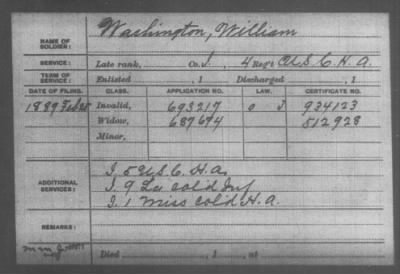 NAME OF SOLDIER: Washington, William
SERVICE: Late rank, Co. I, 4 Reg't U.S.C.H.A.
TERM OF SERVICE: Enlisted , 1 Discharged , 1
DATE OF FILING. CLASS. APPLICATION NO. LAW. CERTIFICATE NO.
1889 Feb 25 Invalid, 693217 934123
Widow, 687674 512928
Minor,
ADDITIONAL SERVICES:
I. 5 U.S.C.H.A.
I. 9 La Cold Inf
I. 1 Miss Cold H.A.
REMARKS:
Died , 1 , at